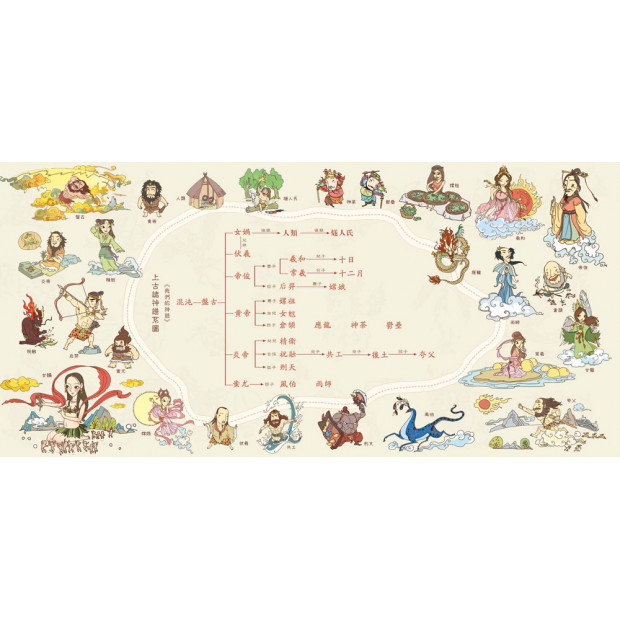 上古諸神譜系圖
《我們的神話》
混沌—盤古
女媧 人類 燧人氏
伏羲
帝俊 羲和 十日
常羲 十二月
后羿 嫦娥
黃帝 嫘祖
女魃
倉頡 應龍 神荼 鬱壘
炎帝 精衛
祝融 共工 后土 夸父
刑天
蚩尤 風伯 雨師
盤古
人類
燧人氏
神荼
鬱壘
嫘祖
羲和
帝俊
炎帝
精衛
應龍
雨師
倉頡
祝融
后羿
蚩尤
常羲
女魃
女媧
嫦娥
伏羲
共工
刑天
風伯
夸父